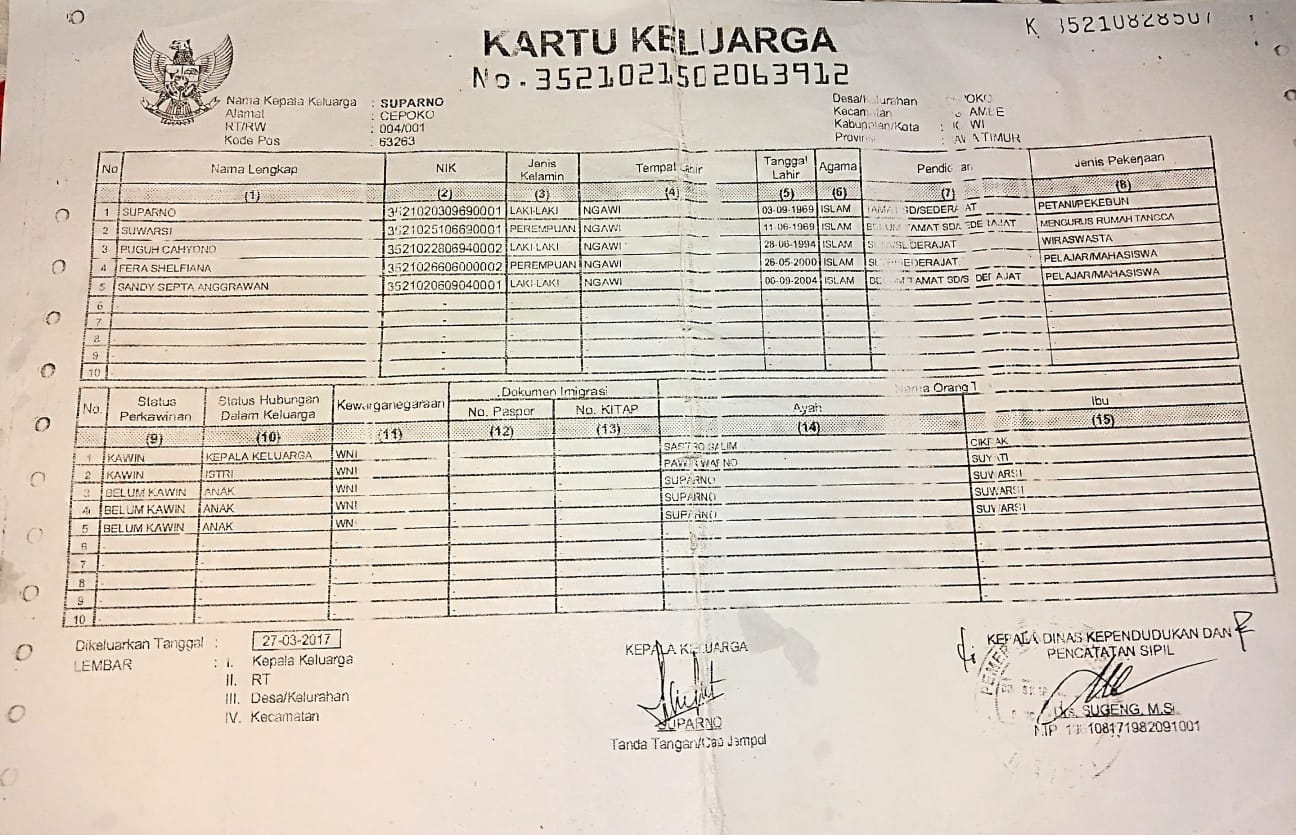 KARTU KELUARGA
No. 3521021502063912
Nama Kepala Keluarga : SUPARNO
Alamat : CEPOKO
RT/RW : 004/001
Kode Pos : 63263
Desa/Kelurahan :
Kecamatan :
Kabupaten/Kota :
Provinsi : TIMUR
No Nama Lengkap NIK Jenis Kelamin Tempat Lahir Tanggal Lahir Agama Jenis Pekerjaan
(1) (2) (3) (4) (5) (6) (7) (8)
1 SUPARNO 3521020309690001 LAKI-LAKI NGAWI 03-09-1969 ISLAM PETANI/PEKEBUN
2 SUWARSI 3521025106690001 PEREMPUAN NGAWI 11-06-1969 ISLAM MENGURUS RUMAH TANGGA
3 PUGUH CAHYONO 3521022806940002 LAKI-LAKI NGAWI 28-06-1994 ISLAM WIRASWASTA
4 FERA SHELFIANA 3521026606000002 PEREMPUAN NGAWI 26-05-2000 ISLAM PELAJAR/MAHASISWA
5 SANDY SEPTA ANGGRAWAN 3521020609040001 LAKI-LAKI NGAWI 06-09-2004 ISLAM PELAJAR/MAHASISWA
6 -
7 -
8 -
9 -
10 -
No. Status Perkawinan Status Hubungan Dalam Keluarga Kewarganegaraan Dokumen Imigrasi No. Paspor No. KITAP Ayah Ibu
(9) (10) (11) (12) (13) (14) (15)
1 KAWIN KEPALA KELUARGA WNI
2 KAWIN ISTRI WNI
3 BELUM KAWIN ANAK WNI SUPARNO SUWARSI
4 BELUM KAWIN ANAK WNI SUPARNO SUWARSI
5 BELUM KAWIN ANAK WNI SUPARNO SUWARSI
6 -
7 -
8 -
9 -
10 -
Dikeluarkan Tanggal : 27-03-2017
LEMBAR : I. Kepala Keluarga
II. RT
III. Desa/Kelurahan
IV. Kecamatan
KEPALA KELUARGA
SUPARNO
Tanda Tangan/Cap Jempol
KEPALA DINAS KEPENDUDUKAN DAN
PENCATATAN SIPIL
Drs. SUGENG, M.Si.
NIP.